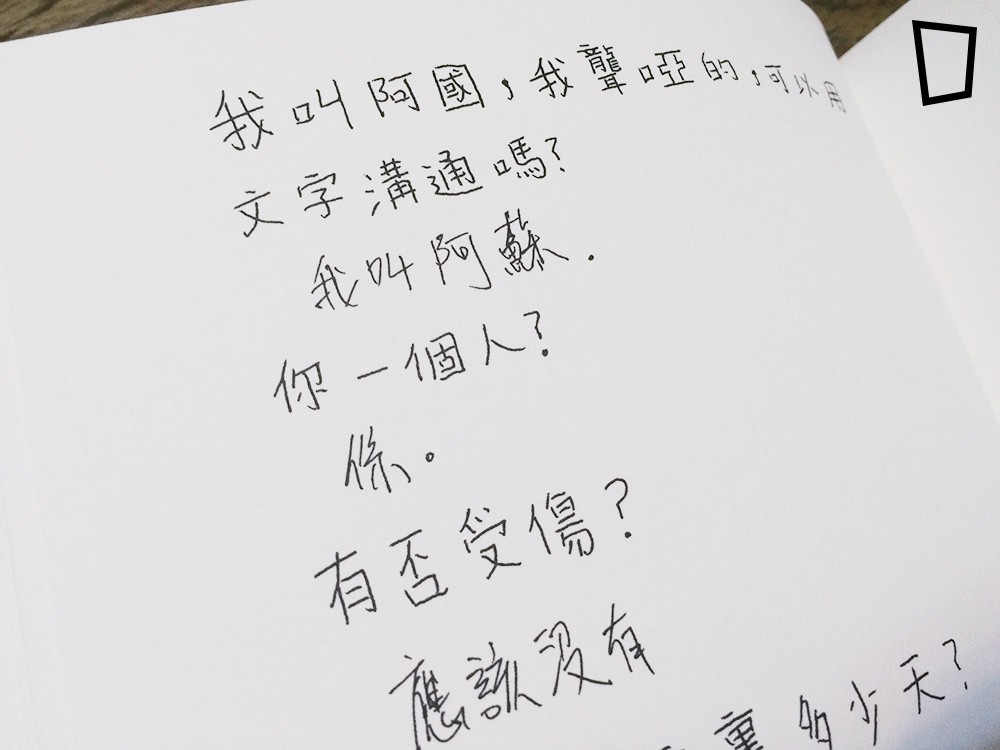 我叫阿國，我聾啞的，可以用
文字溝通嗎？
我叫阿蘇．
你一個人？
係．
有否受傷？
應該沒有
裏多少天？